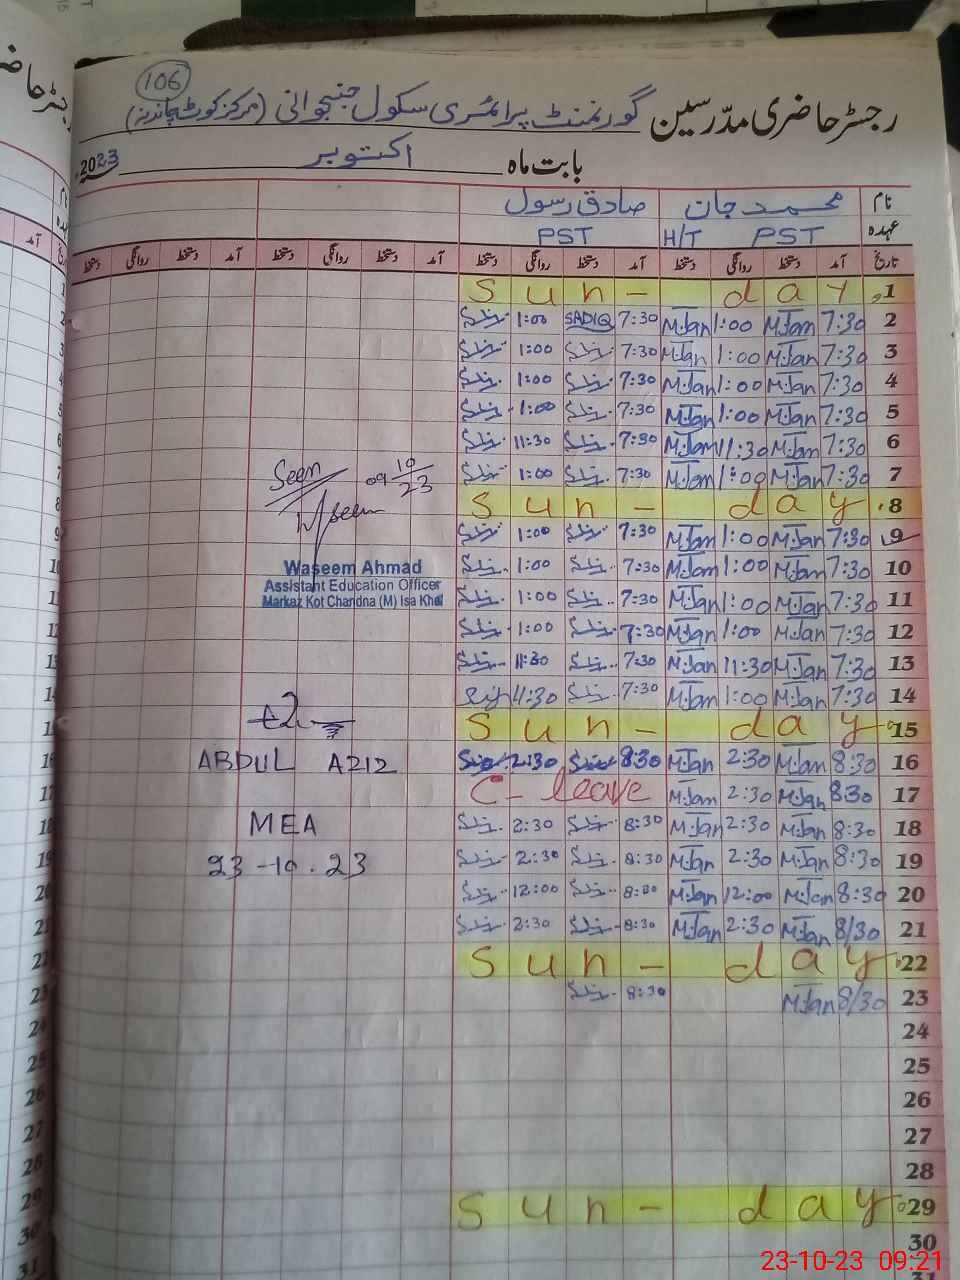 106
رجسٹر حاضری مدرسین گورنمنٹ پرائمری سکول جنجوانی (مرکز کوٹ چاندنہ)
بابت ماہ اکتوبر 2023
نام محمد جان صادق رسول
عہدہ PST H/T PST
تاریخ آمد دستخط روانگی دستخط آمد دستخط روانگی دستخط آمد دستخط روانگی دستخط آمد دستخط روانگی دستخط
Sun-day 1
1:00 SADIQ 7:30 M.Jan 1:00 M.Jan 7:30 2
1:00 7:30 M.Jan 1:00 M.Jan 7:30 3
1:00 7:30 M.Jan 1:00 M.Jan 7:30 4
1:00 7:30 M.Jan 1:00 M.Jan 7:30 5
11:30 7:30 M.Jan 11:30 M.Jan 7:30 6
1:00 7:30 M.Jan 1:00 M.Jan 7:30 7
Seen 09 10/23
Waseem
Sun-day 8
1:00 7:30 M.Jan 1:00 M.Jan 7:30 9
Waseem Ahmad
Assistant Education Officer
Markaz Kot Chandna (M) Isa Khel
1:00 7:30 M.Jan 1:00 M.Jan 7:30 10
1:00 7:30 M.Jan 1:00 M.Jan 7:30 11
1:00 7:30 M.Jan 1:00 M.Jan 7:30 12
11:30 7:30 M.Jan 11:30 M.Jan 7:30 13
4:30 7:30 M.Jan 1:00 M.Jan 7:30 14
Sun-day 15
ABDUL AZIZ
2:30 8:30 M.Jan 2:30 M.Jan 8:30 16
C-leave M.Jan 2:30 M.Jan 830 17
MEA
2:30 8:30 M.Jan 2:30 M.Jan 8:30 18
23-10.23
2:30 8:30 M.Jan 2:30 M.Jan 8:30 19
12:00 8:30 M.Jan 12:00 M.Jan 8:30 20
2:30 8:30 M.Jan 2:30 M.Jan 8/30 21
Sun-day 22
8:30 M.Jan 8/30 23
24
25
26
27
28
Sun-day 29
30
23-10-23 09:21